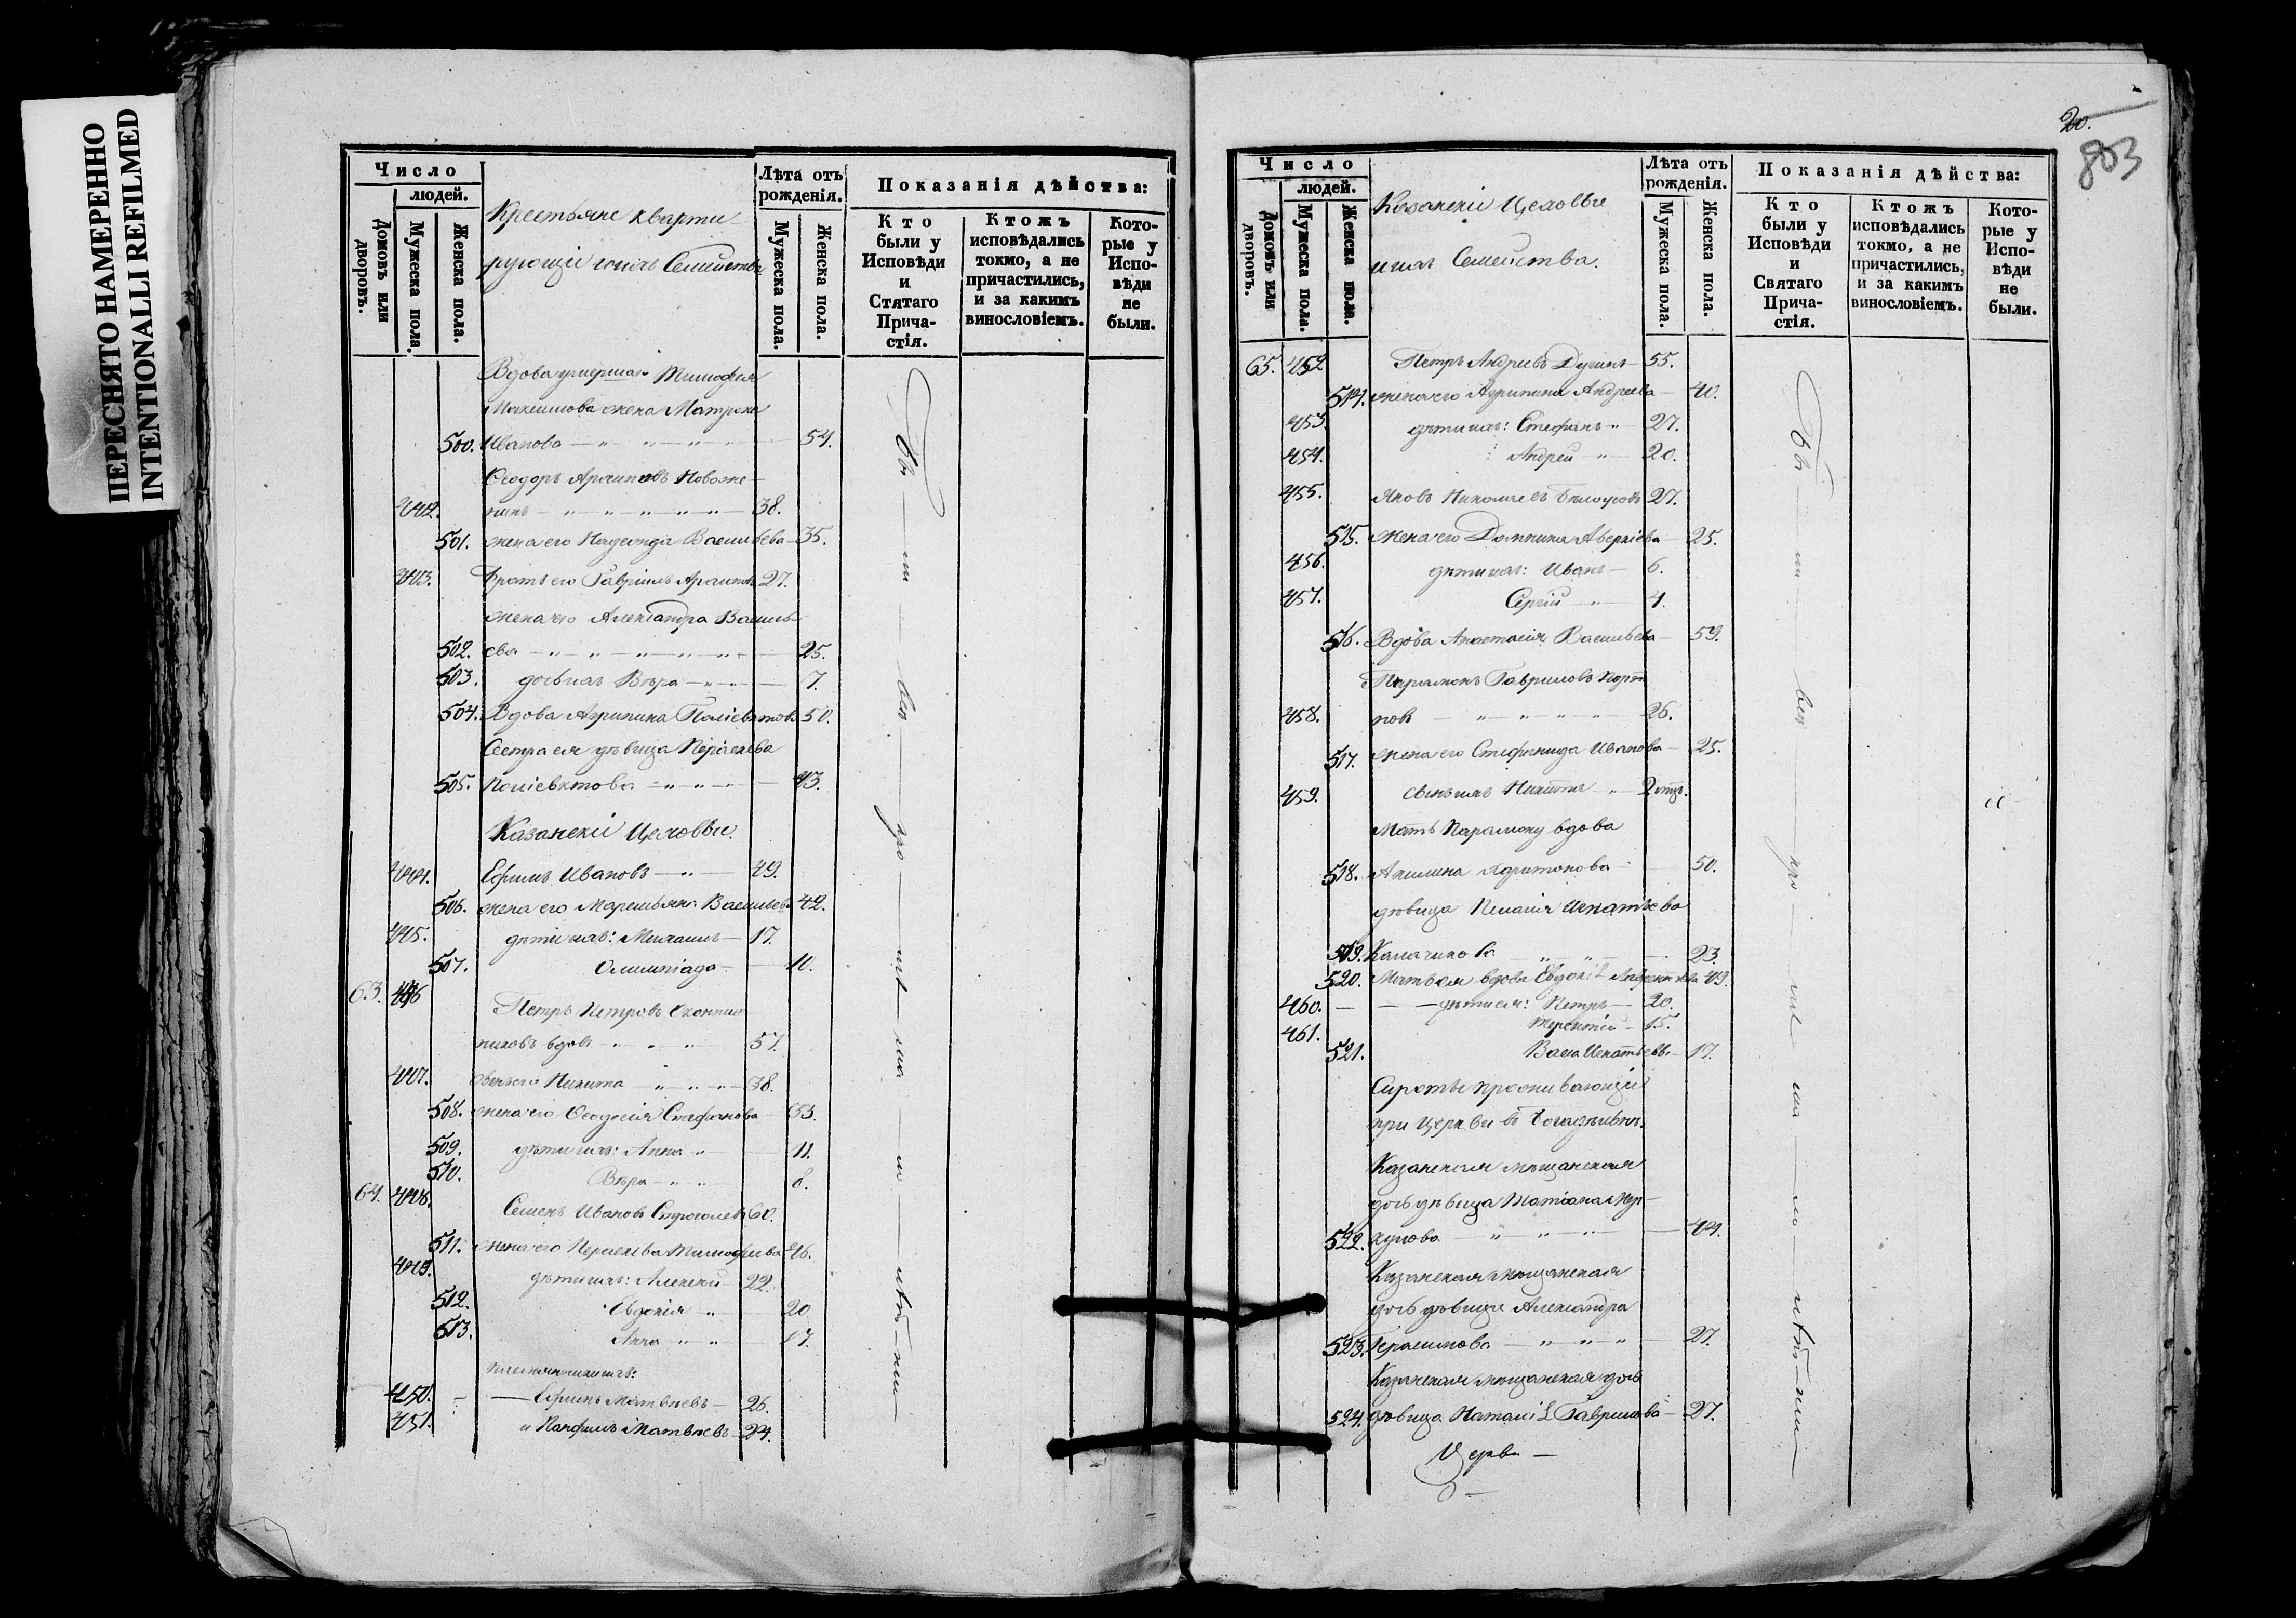 ПЕРЕСНЯТО НАМЕРЕННО
INTENTIONALLI REFILMED
Число
людей.
Домовъ или дворовъ.
Мужеска пола.
Женска пола.
Крестьяне кварти
рующіе и ихъ Семейства
Лѣта отъ рожденія.
Мужеска пола.
Женска пола.
Показанія дѣйства:
Кто были у Исповѣди и Стятаго Прича-стія.
Ктожъ исповѣдались токмо, а не причастились, и за какимъ винословіемъ.
Кото-рые у Испо-вѣди не были.
Вдова умершаго Тимофея
Максимова жена Матрона
500. Иванова 54.
Ѳеодоръ Архиповъ Новоже-
442. нинъ 38.
501. жена его Надежда Васильева 35.
443. Братъ его Гавріилъ Архиповъ 27.
жена его Александра Василь-
502. ева 25.
503. дочь ихъ Вѣра 7.
504. Вдова Агрипина Поліевктова 50.
Сестра ея дѣвица Параскева
505. Поліевктова 43.
Казанскіи Цеховые.
444. Ефимъ Ивановъ 49.
506. жена его Маремьяна Васильева 42.
445. дѣти ихъ: Михаилъ 17.
507. Олимпіада 10.
63. 446 Петръ Петровъ
никовъ вдовъ 57.
447. сынъ его Никита 38.
508. жена его Ѳеодосія Стефанова 33.
509. дѣти ихъ: Анна 11.
510. Вѣра 8.
64. 448. Семенъ Ивановъ 60.
511. жена его Параскева Тимофеева 46.
449. дѣти ихъ: Алексей 22.
512. Евдокія 20
513. Анна 17.
племянники ихъ:
450. Ефимъ Матвѣевъ 26.
451. и Панфилъ Матвѣевъ 24.
20.
803
Число
людей.
Домовъ или дворовъ.
Мужеска пола.
Женска пола.
Казанскіи Цеховые
и ихъ Семейства.
Лѣта отъ рожденія.
Мужеска пола.
Женска пола.
Показанія дѣйства:
Кто были у Исповѣди и Святаго Прича-стія.
Ктожъ исповѣдались токмо, а не причастились, и за какимъ винословіемъ.
Кото-рые у Испо-вѣди не были.
65. 452 Петръ Андреевъ 55.
514. жена его Агрипина Андреева 40.
453. дѣти ихъ: Стефанъ 27.
454. Андрей 20.
455. Яковъ Николаевъ Бѣлоусовъ 27.
515. жена его Домникия Аверкіева 25.
456. дѣти ихъ: Иванъ 6.
457. Сергій 4.
516. Вдова Анастасія Васильева 59.
Парамонъ Гавриловъ
458. новъ 26.
517. жена его Стефанида Иванова 25.
459. сынъ ихъ Никита 2
Мать Парамону вдова
518. Акилина Харитонова 50.
дѣвица Пелагія Игнатьева
519. Калачикова 23.
520. Мать ея вдова Евдокія Лаврентьева 49.
460. дѣти ея: Петръ 20.
461. Терентій 15.
521. Васса Игнатьевы 17.
Сироты проживающіе
при Церкви въ Богадѣльнѣ.
Казанская мѣщанская
дочь дѣвица Татіана Мер-
522. кулова 44.
Казанская мѣщанская
дочь дѣвица Александра
523. Герасимова 27.
Казанская мѣщанская дочь
524. дѣвица Наталія Гаврилова 27.